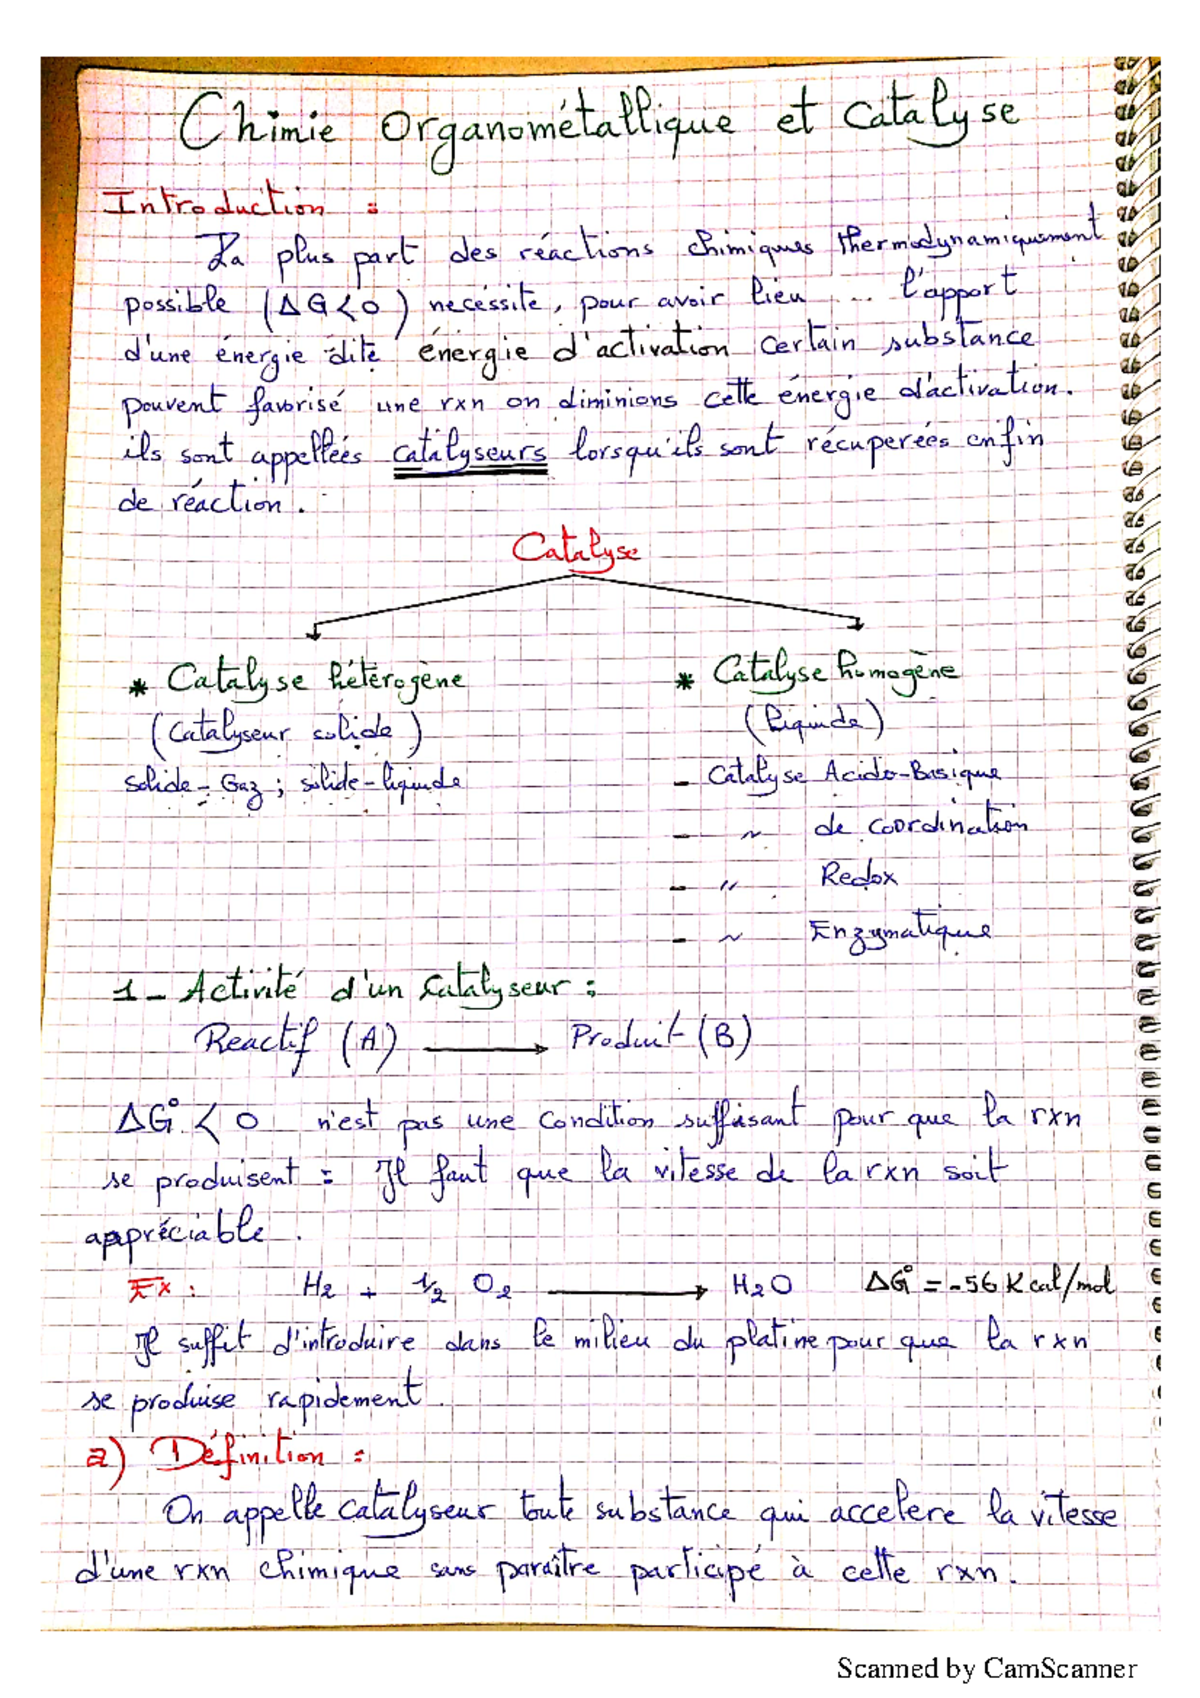 Chimie Organométallique et Catalyse
Introduction :
La plus part des réactions chimiques thermodynamiquement
possible (ΔG<0) necéssite, pour avoir lieu ... l'apport
d'une énergie dite énergie d'activation certain substance
peuvent favorisé une rxn on diminions cette énergie d'activation.
ils sont appellées catalyseurs lorsqu'ils sont récuperées enfin
de réaction.
Catalyse
* Catalyse hétérogène
(Catalyseur solide)
solide-Gaz ; solide-liquide
* Catalyse homogène
(liquide)
- Catalyse Acido-Basique
- " de coordination
- " Redox
- " Enzymatique
1 - Activité d'un Catalyseur :
Reactif (A) → Produit (B)
ΔG° < 0 n'est pas une Condition suffisant pour que la rxn
se produisent : Il faut que la vitesse de la rxn soit
appréciable.
Ex : H2 + 1/2 O2 → H2O ΔG° = -56 Kcal/mol
Il suffit d'introduire dans le milieu du platine pour que la rxn
se produise rapidement.
a) Définition :
On appelle catalyseur toute substance qui accelere la vitesse
d'une rxn chimique sans paraître participé à cette rxn.
Scanned by CamScanner